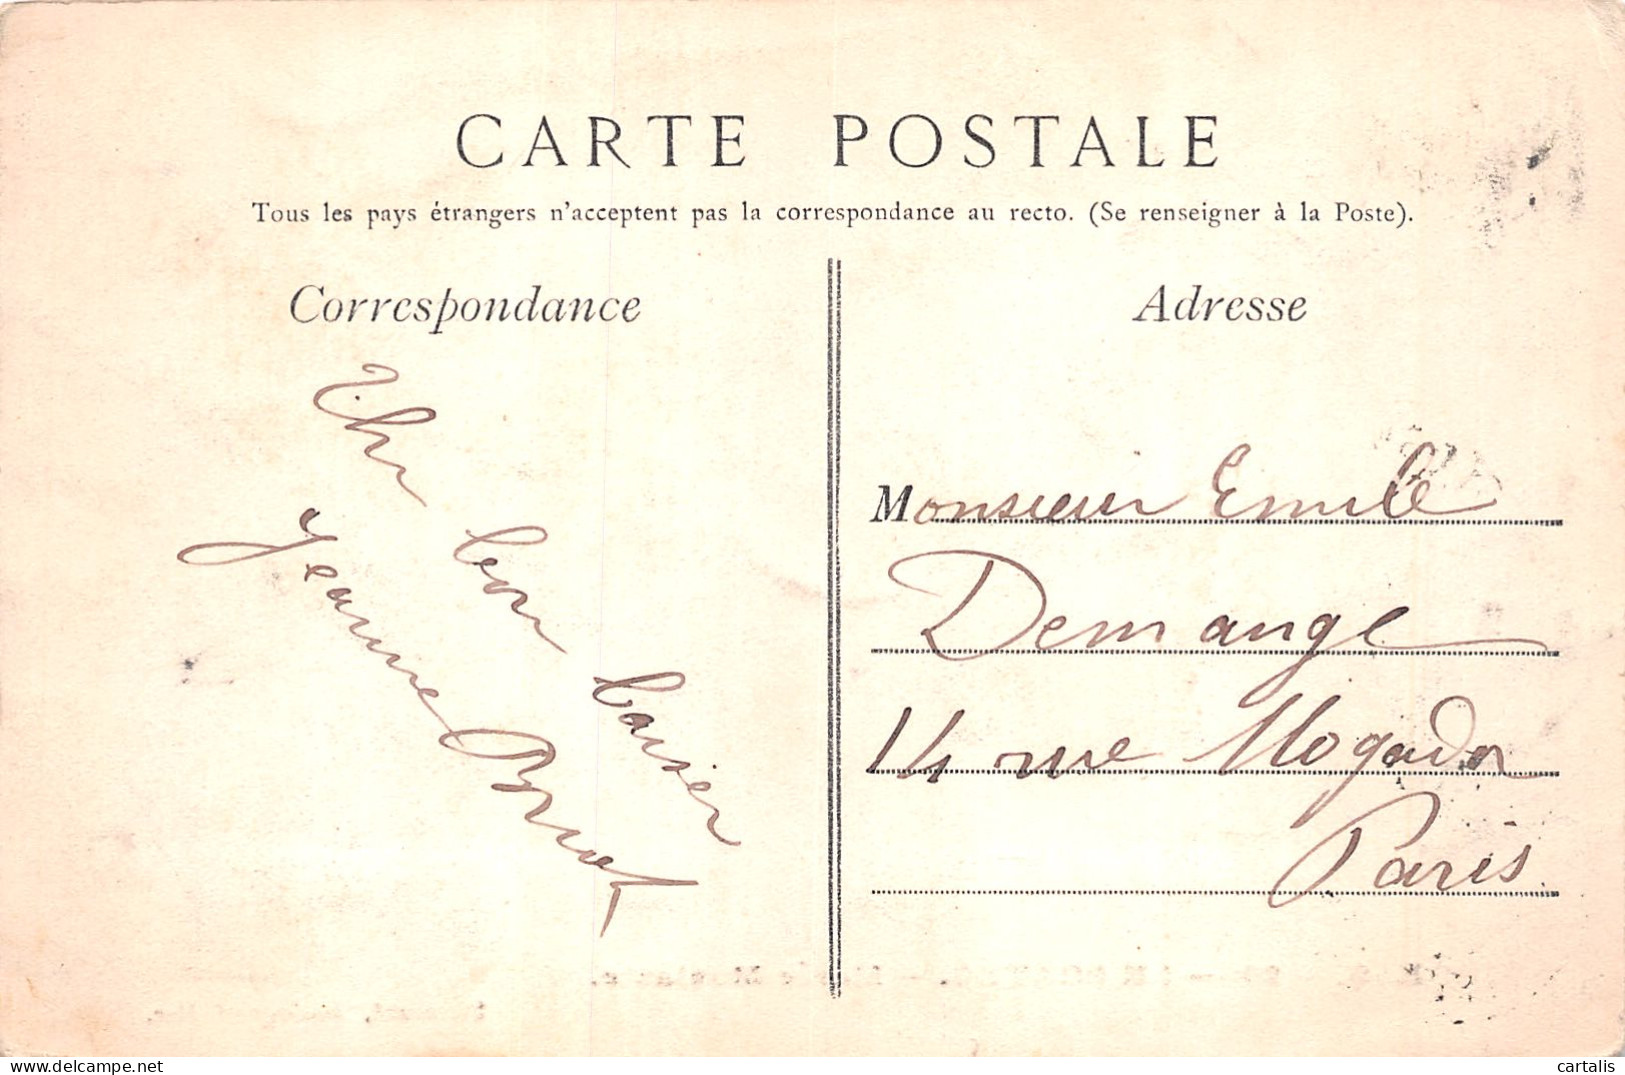 CARTE POSTALE
Tous les pays étrangers n'acceptent pas la correspondance au recto. (Se renseigner à la Poste).
Correspondance
bon baiser
Jeanne
Adresse
Monsieur Emile
Demange
14 rue Mogador
Paris
cartalis